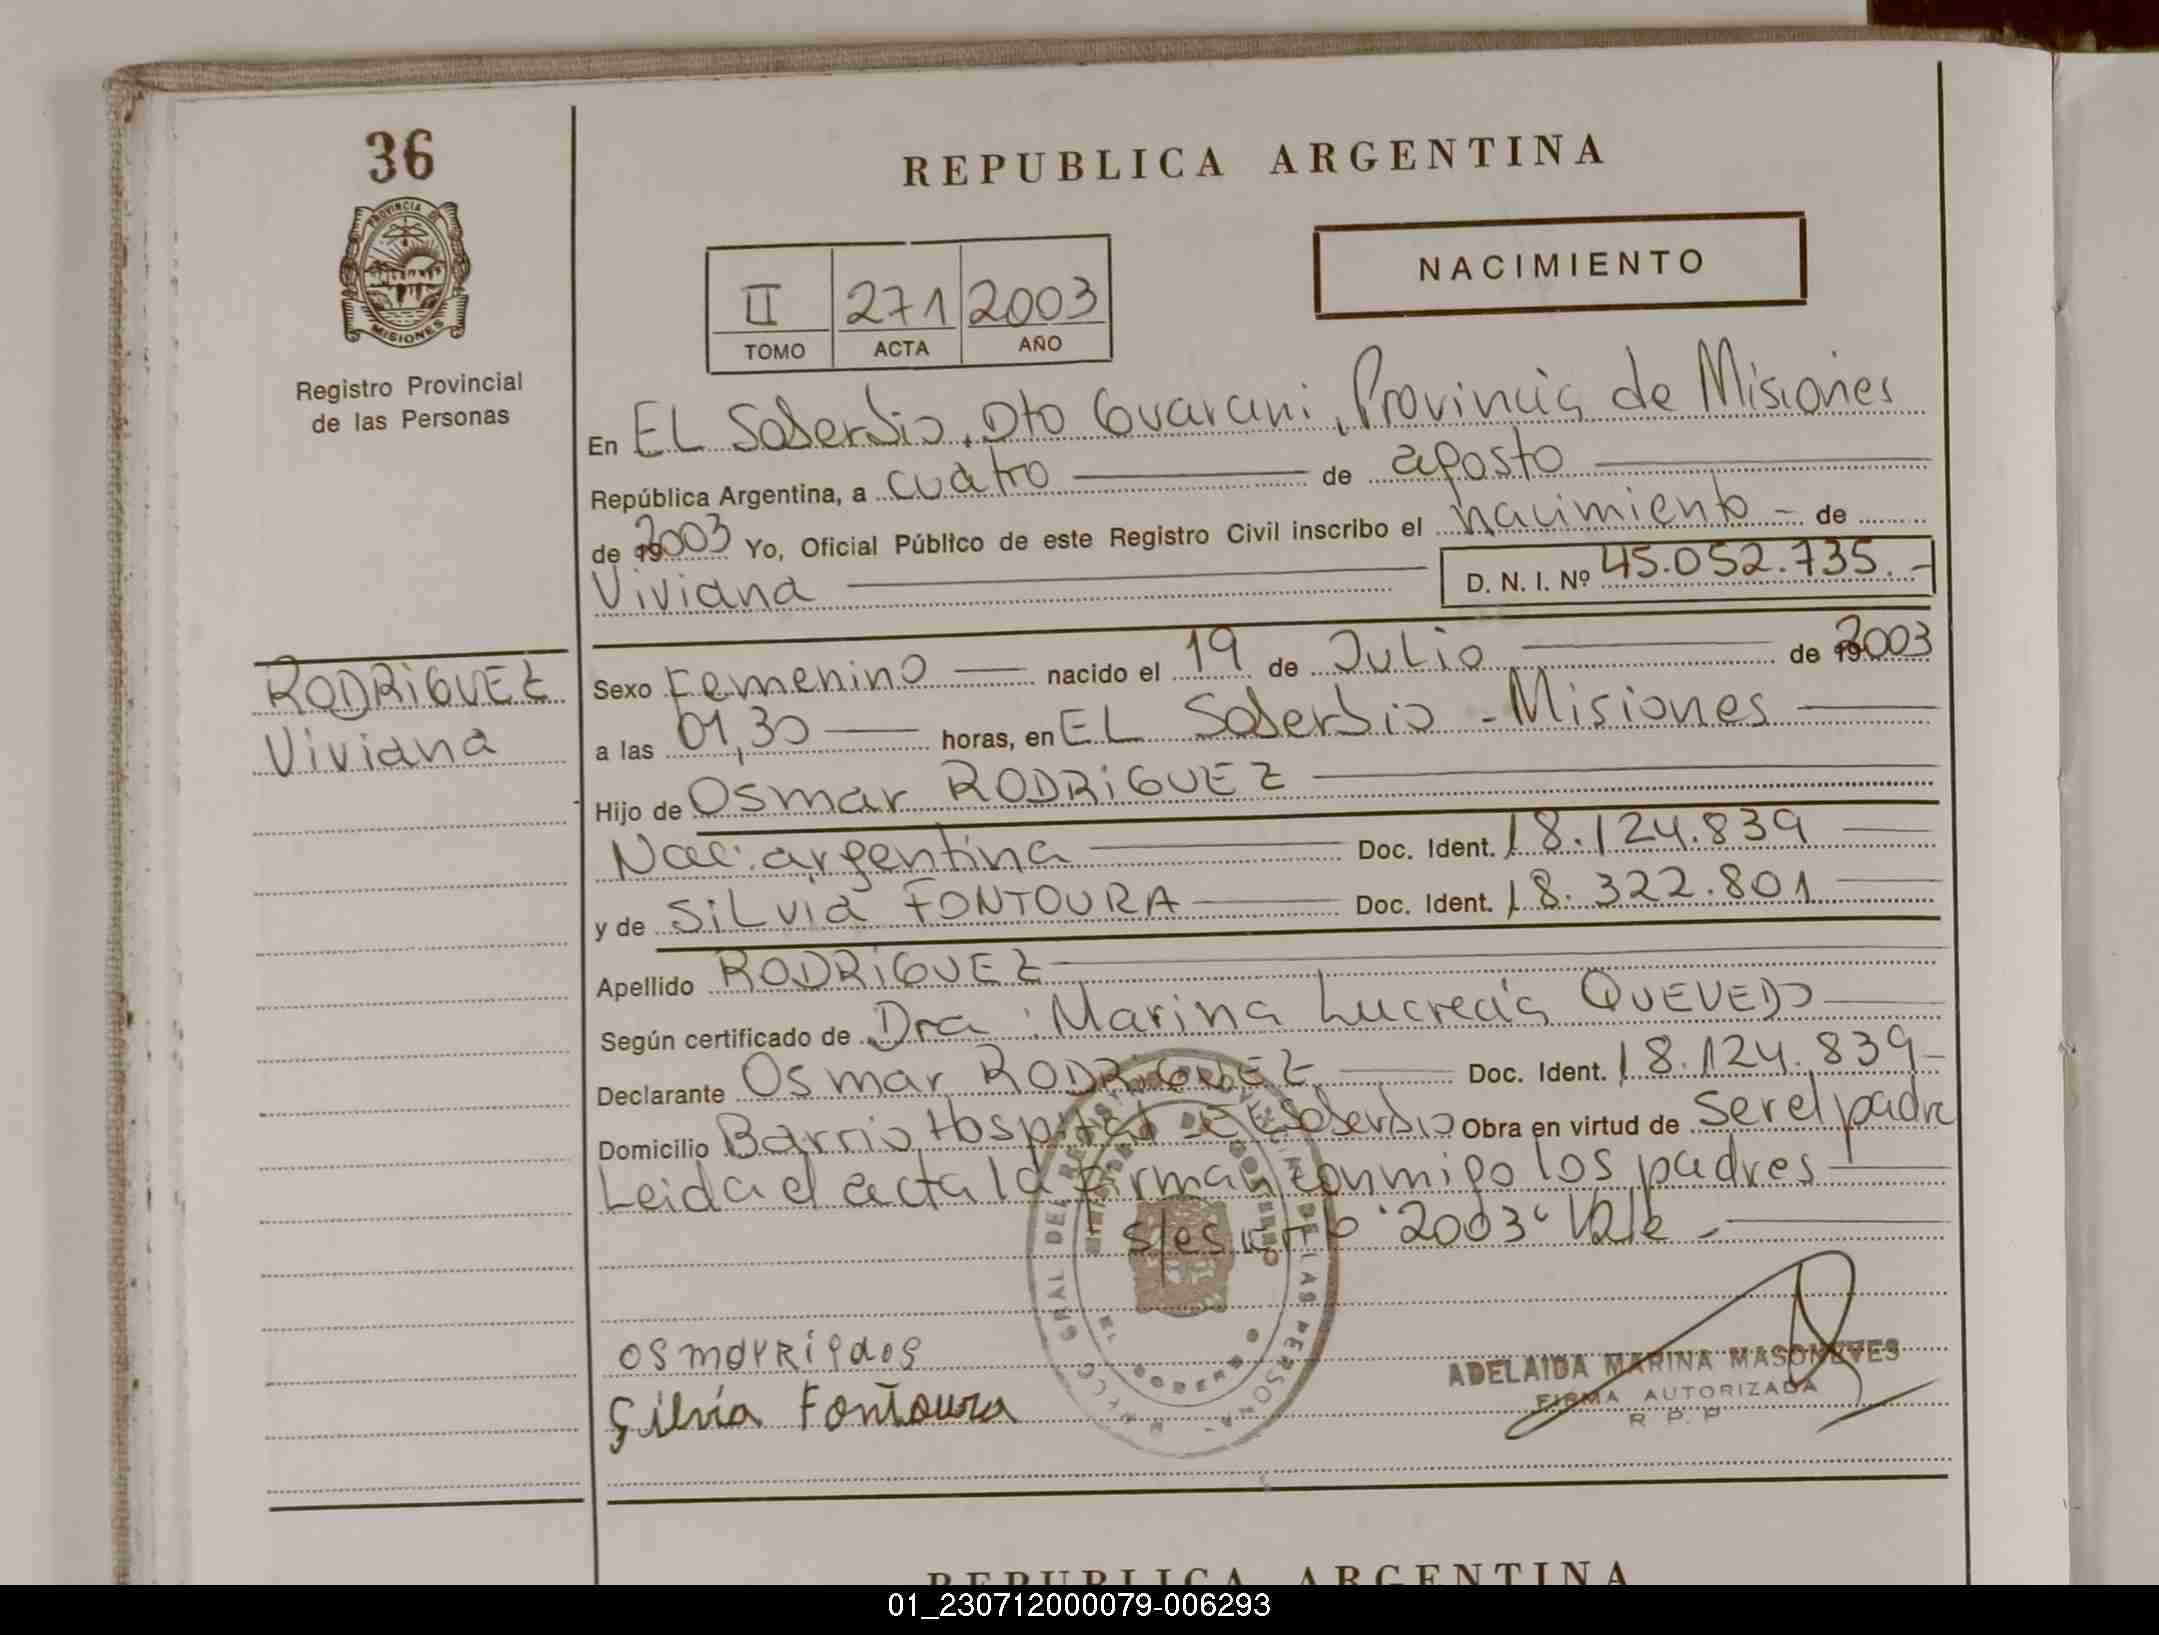 36
PROVINCIA DE
MISIONES
Registro Provincial
de las Personas
REPUBLICA ARGENTINA
NACIMIENTO
II 271 2003
TOMO ACTA AÑO
En EL Soberbio, Dto Guarani, Provincia de Misiones
República Argentina, a cuatro de agosto
de 2003 Yo, Oficial Público de este Registro Civil inscribo el nacimiento - de
Viviana D. N. I. Nº 45.052.735.-
RODRiGUEZ
Viviana
Sexo Femenino nacido el 19 de Julio de 2003
a las 01,30 horas, en EL Soberbio - Misiones
Hijo de Osmar RODRiGUEZ
Nac. argentina Doc. Ident. 18.124.839
y de SiLvia FONTOURA Doc. Ident. 18.322.801
Apellido RODRiGUEZ
Según certificado de Dra. Marina Lucrecia QUEVEDO
Declarante Osmar RODRiGUEZ Doc. Ident. 18.124.839
Domicilio Barrio Hospital - El Soberbio Obra en virtud de ser el padre
Leida el acta la firman conmigo los padres
"2003" Vale -
Silvia Fontoura
ADELAIDA MARINA MASONEVES
FIRMA AUTORIZADA
R P P
REPUBLICA ARGENTINA
01_230712000079-006293